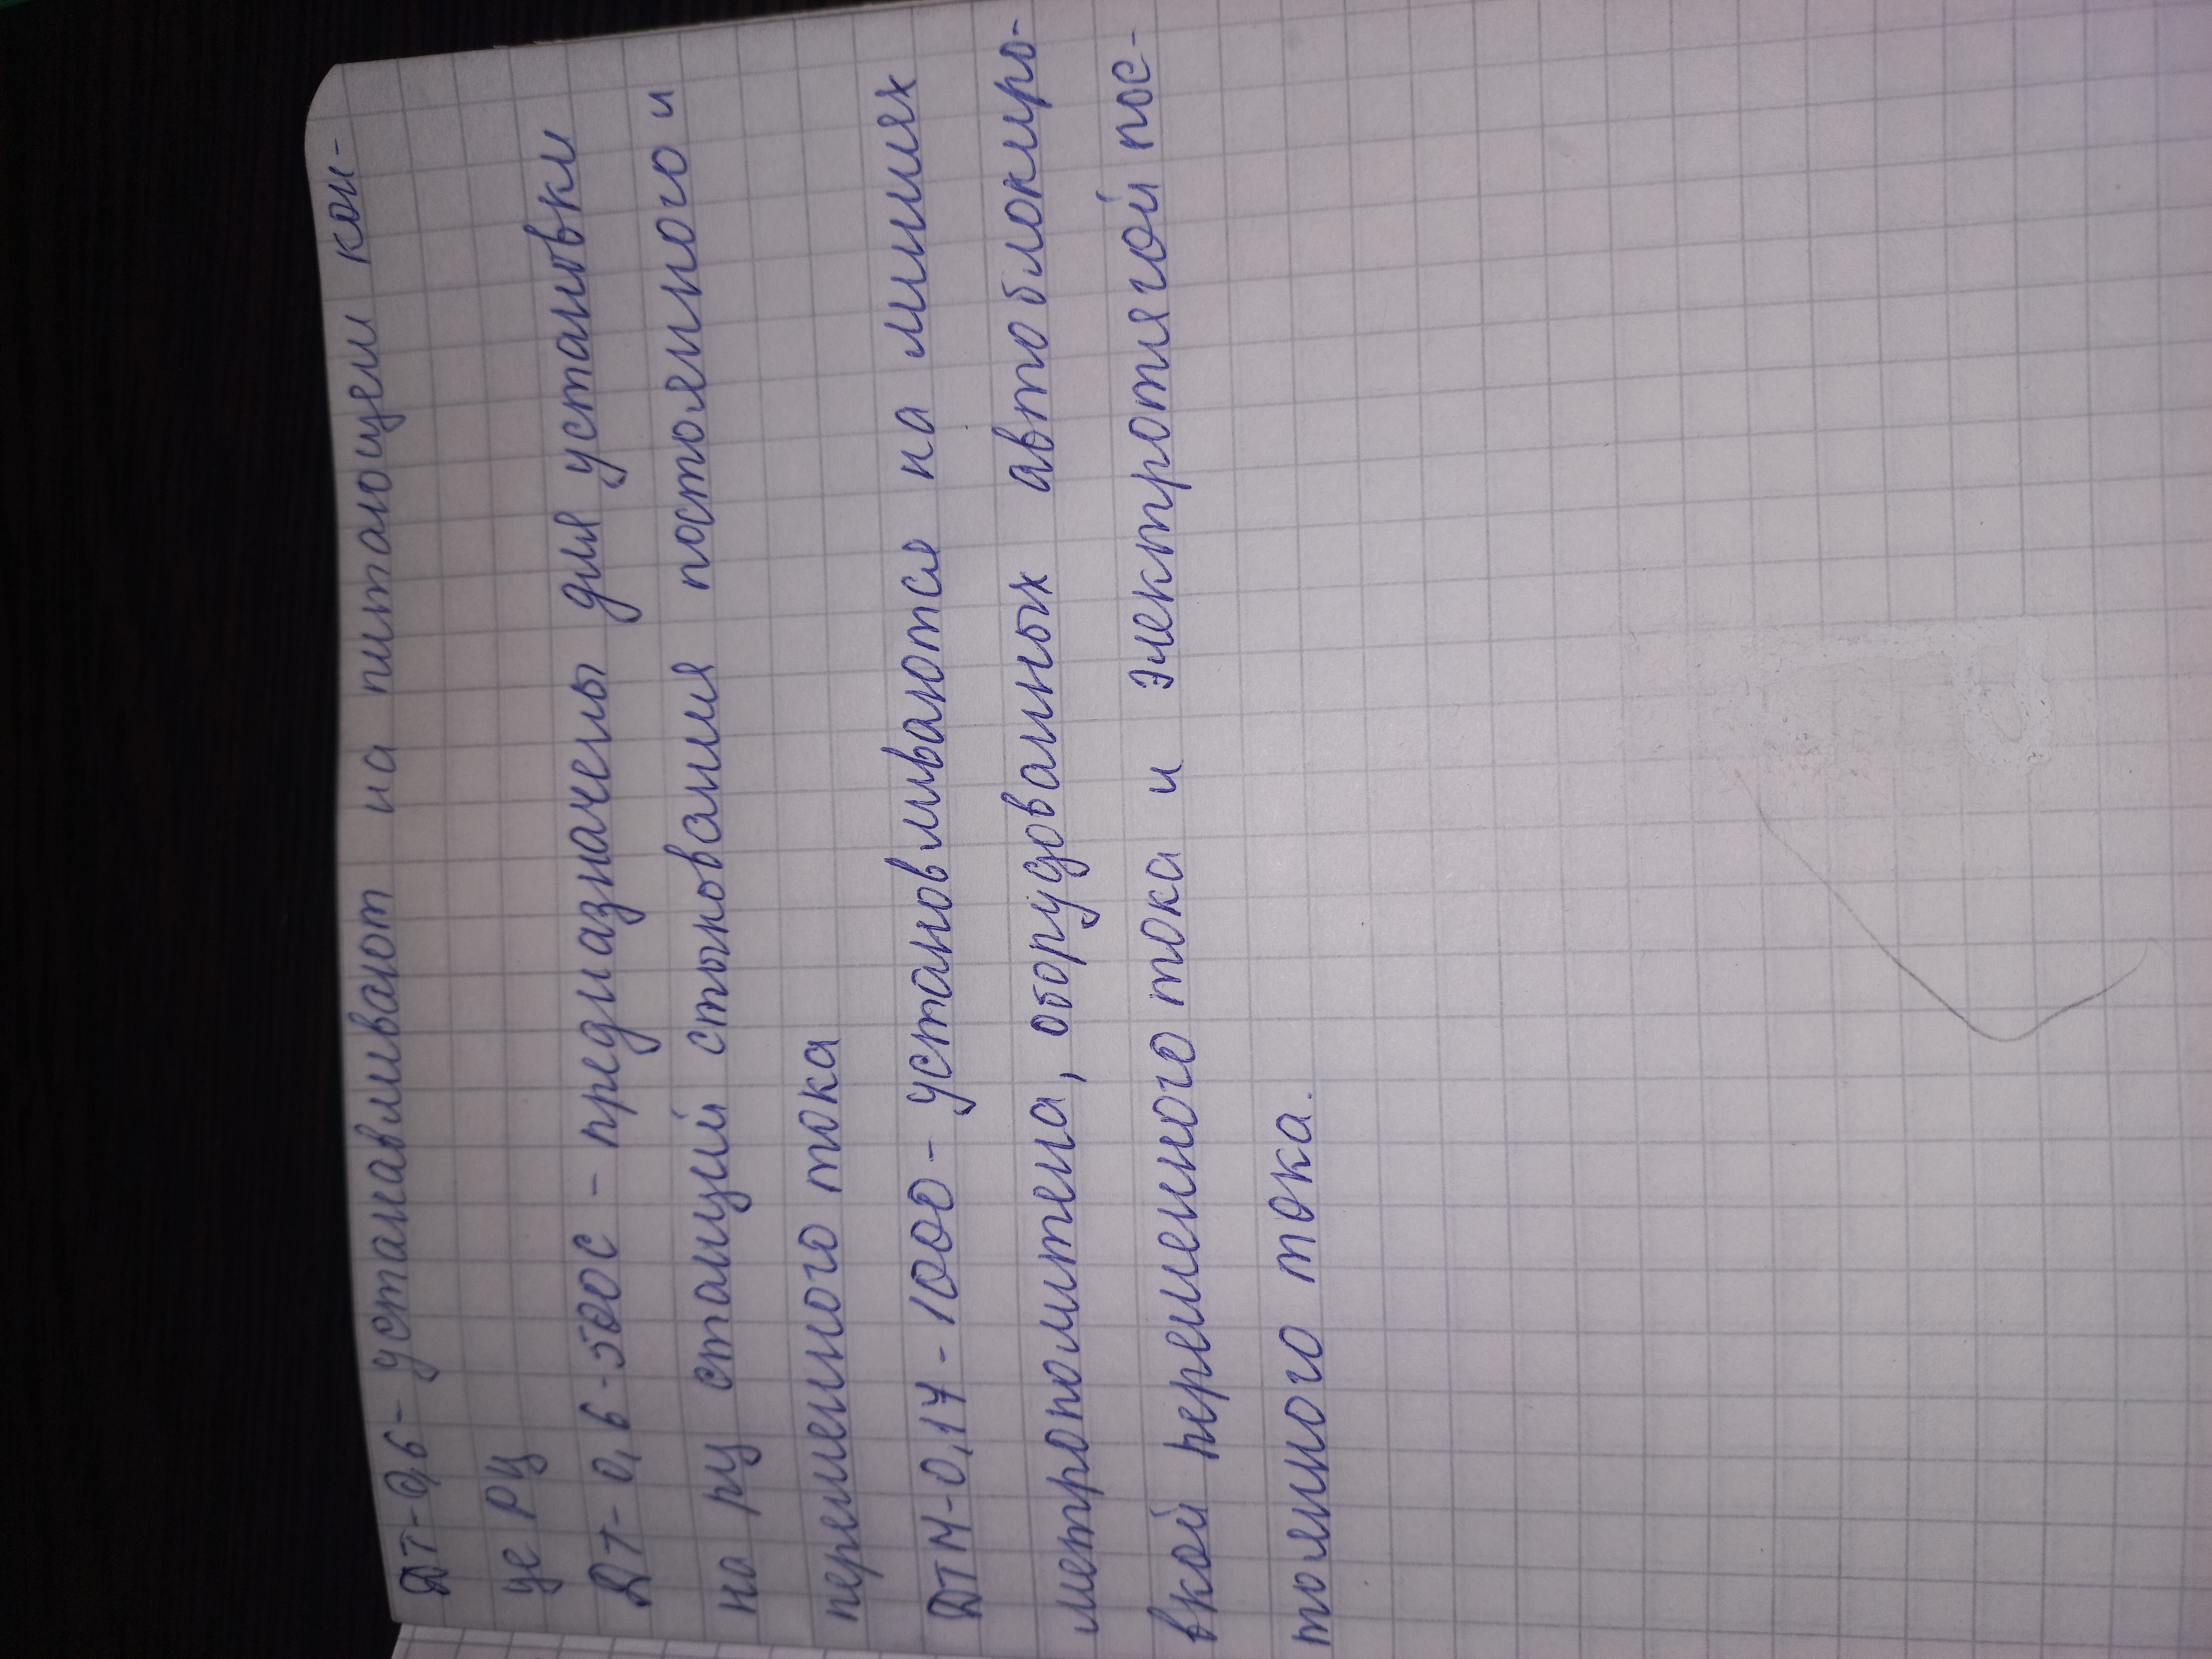 ДТ-0,6- устанавливают на питающем кон-
це РЦ
ДТ-0,6-500С - предназначены для установки
на РЦ станций стыкования постоянного и
переменного тока
ДТМ-0,17-1000- устанавливаются на линиях
метрополитена, оборудованных автоблокиро-
вкой переменного тока и электротягой пос-
тоянного тока.